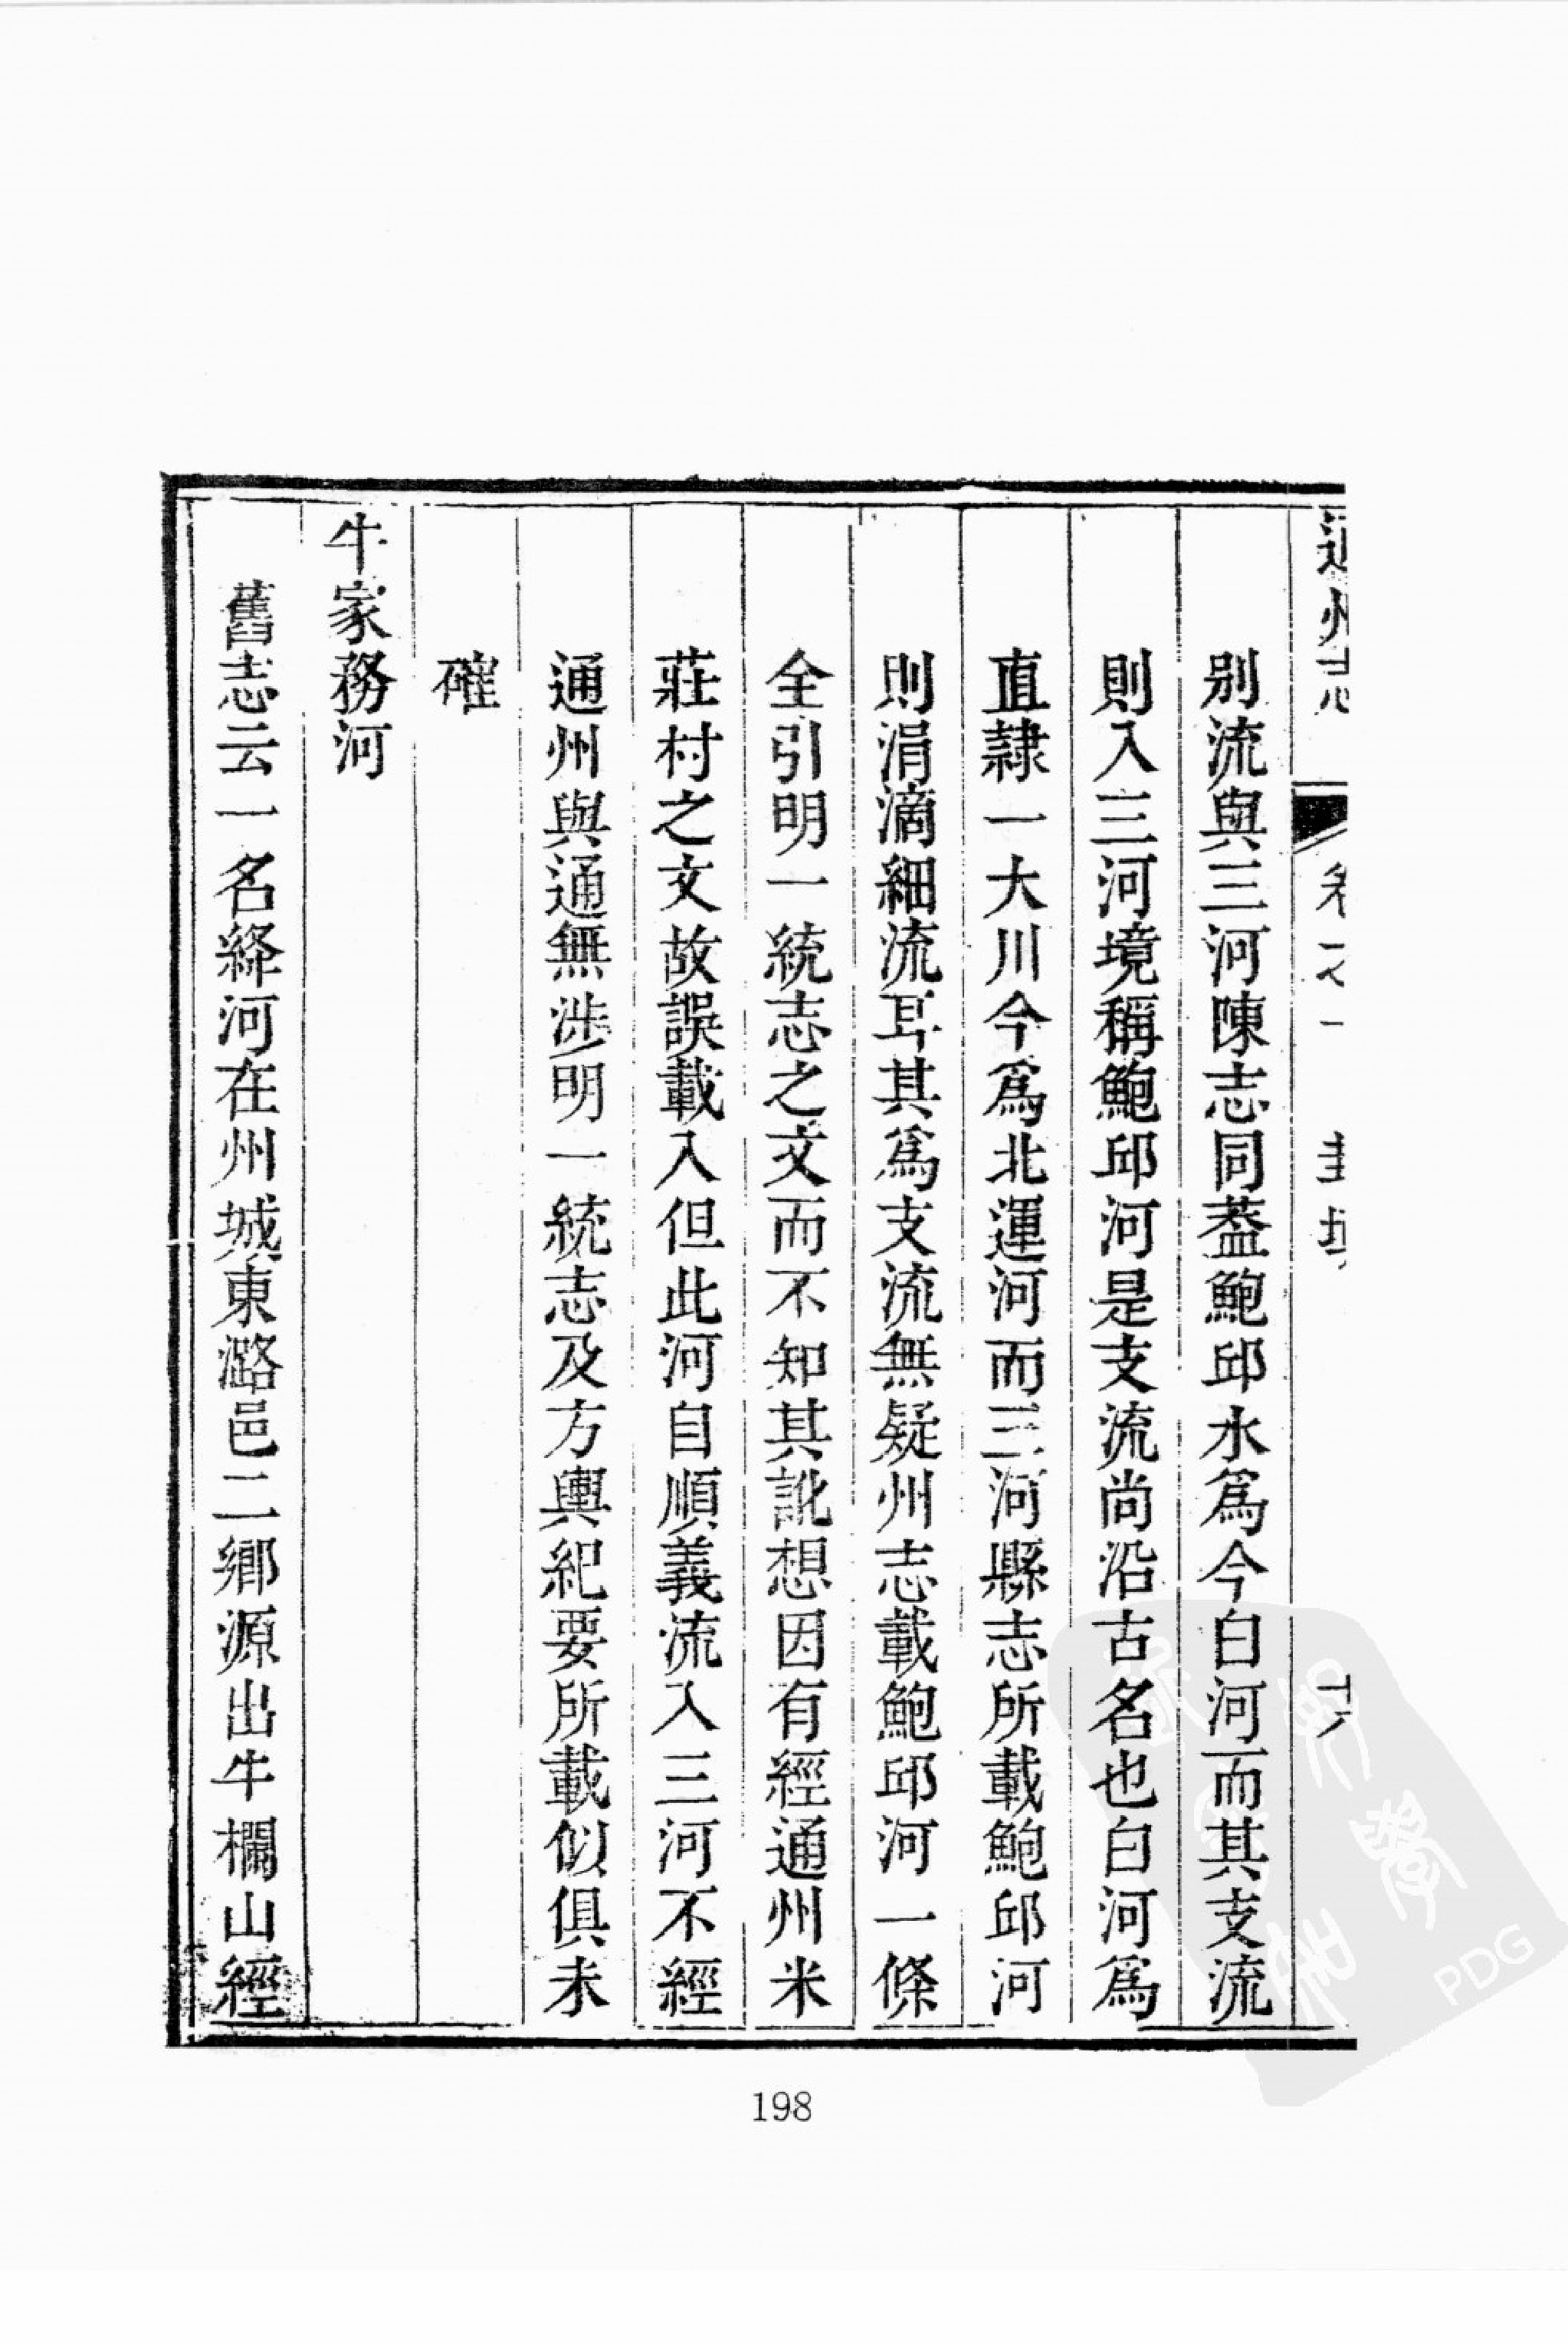 通州志 卷之一 封域 十八
別流與三河陳志同葢鮑邱水爲今白河而其支流
則入三河境稱鮑邱河是支流尚沿古名也白河爲
直隷一大川今爲北運河而三河縣志所載鮑邱河
則涓滴細流耳其爲支流無疑州志載鮑邱河一條
全引明一統志之文而不知其訛想因有經通州米
莊村之文故誤載入但此河自順義流入三河不經
通州與通無涉明一統志及方輿紀要所載似俱未
確
牛家務河
舊志云一名絳河在州城東潞邑二鄉源出牛欄山經
198
PDG